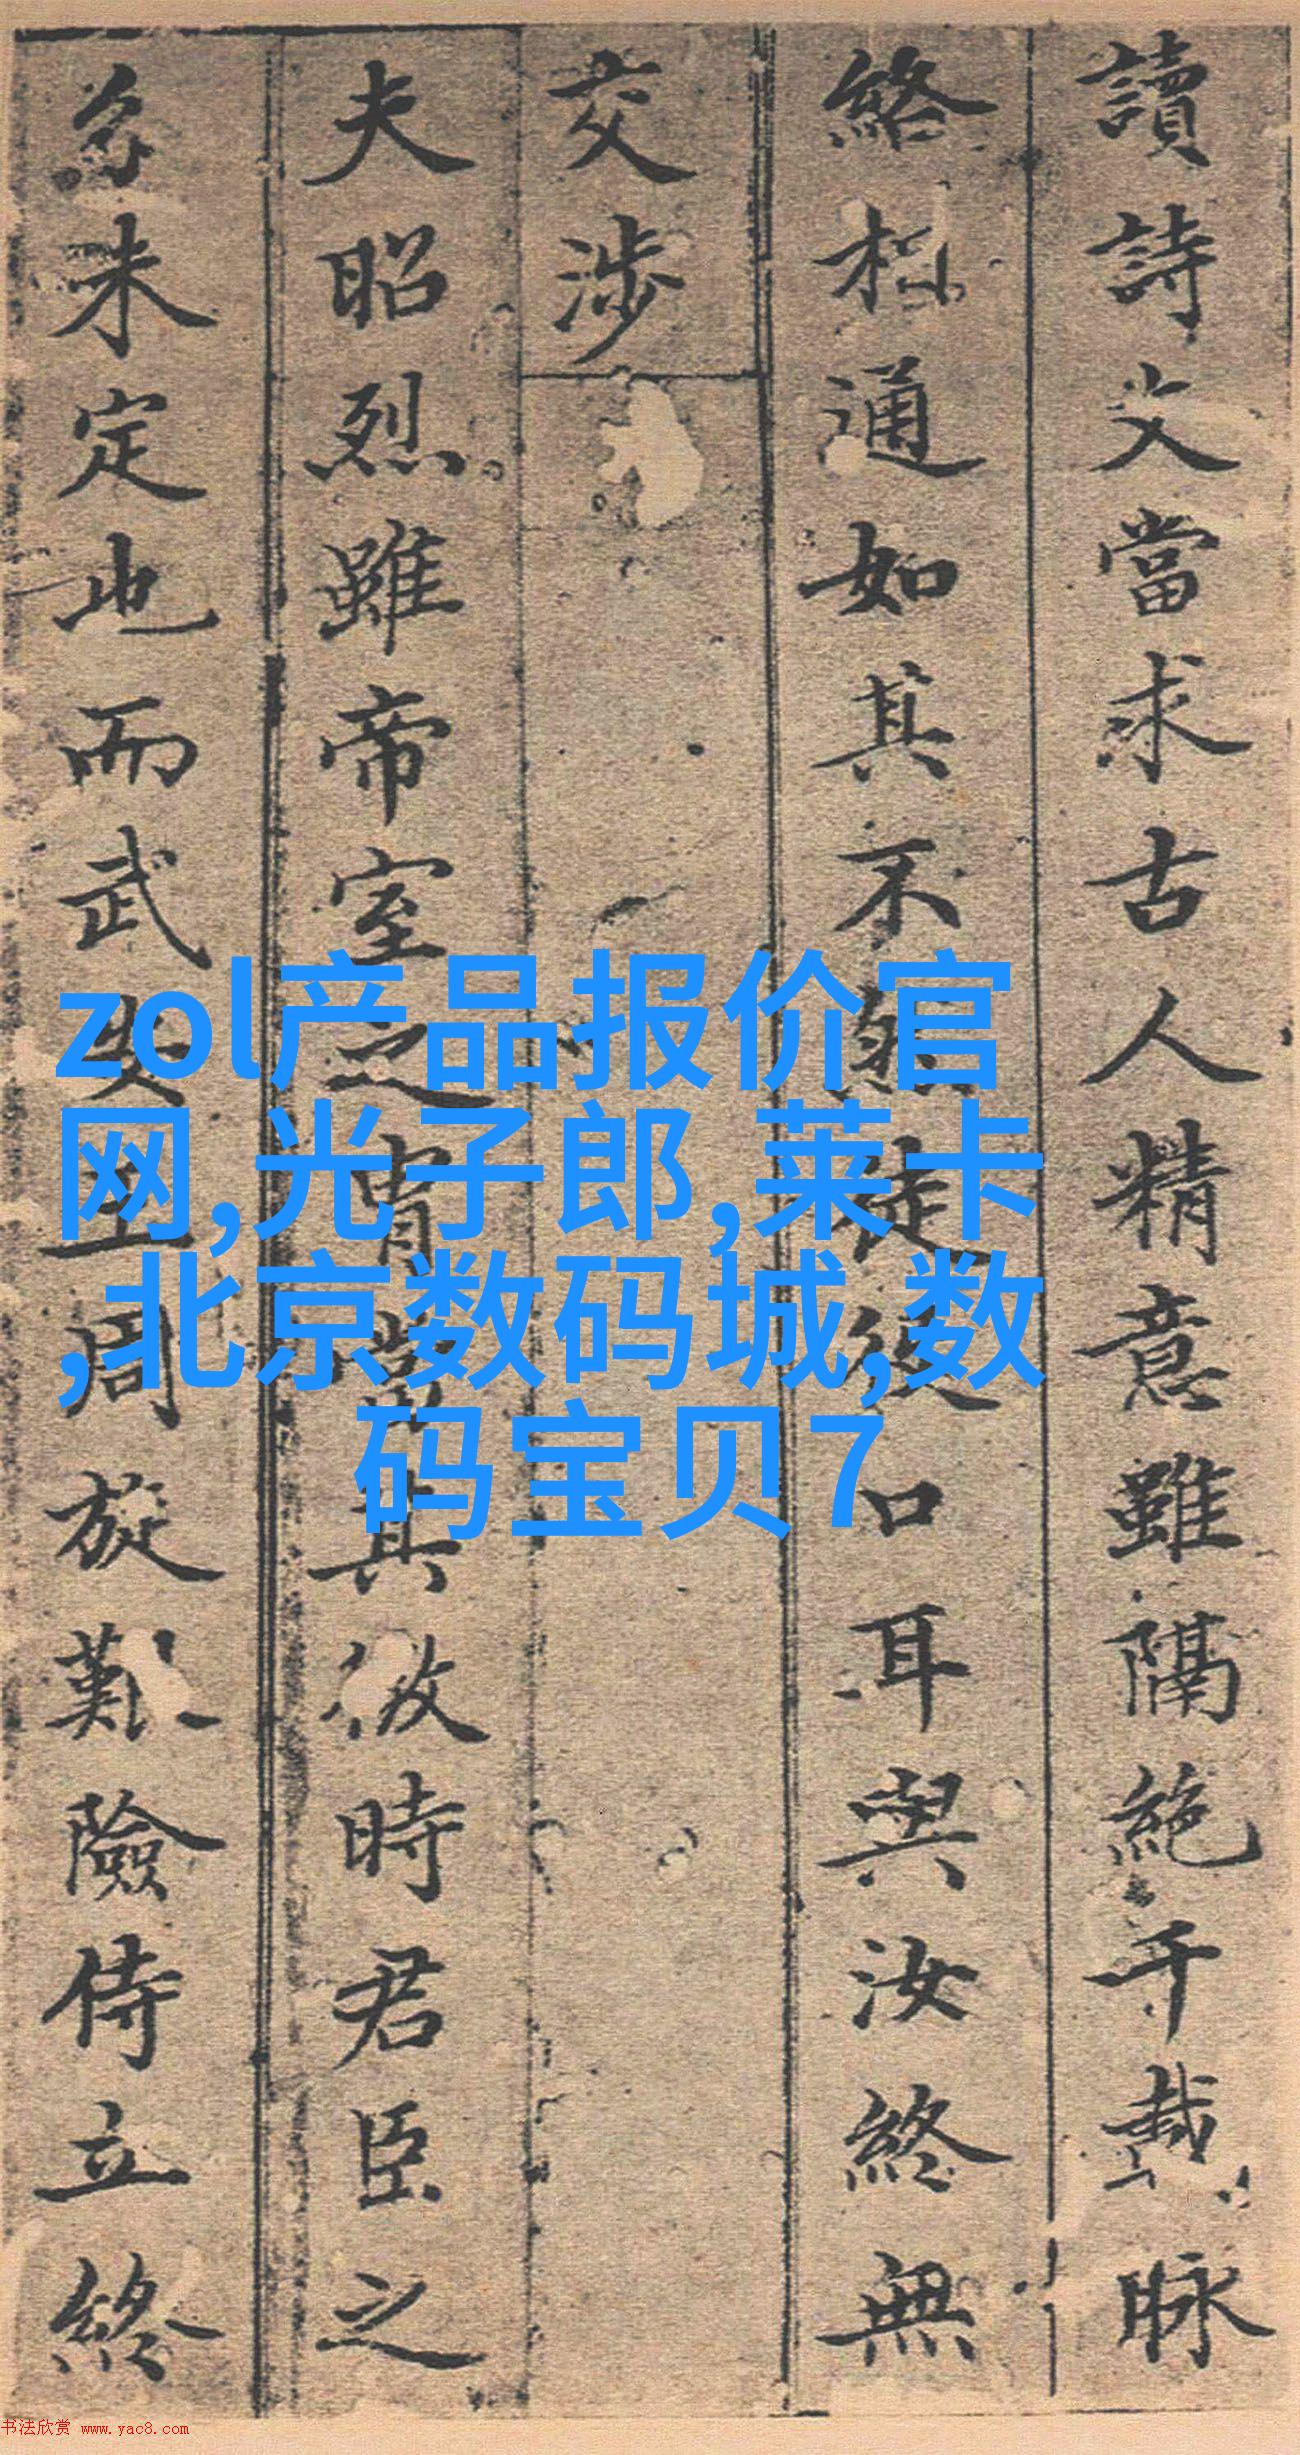 讀詩文當求古人精意雖隔絕千載脉
絡相通如其不徒口耳與汝終無
交涉
夫昭烈雖帝室之冑其時君臣之
未定也而武安王周旋艱險侍立終
zol产品报价官
网,光子郎,莱卡
,北京数码城,数
码宝贝7
书法欣赏 www.yac8.com